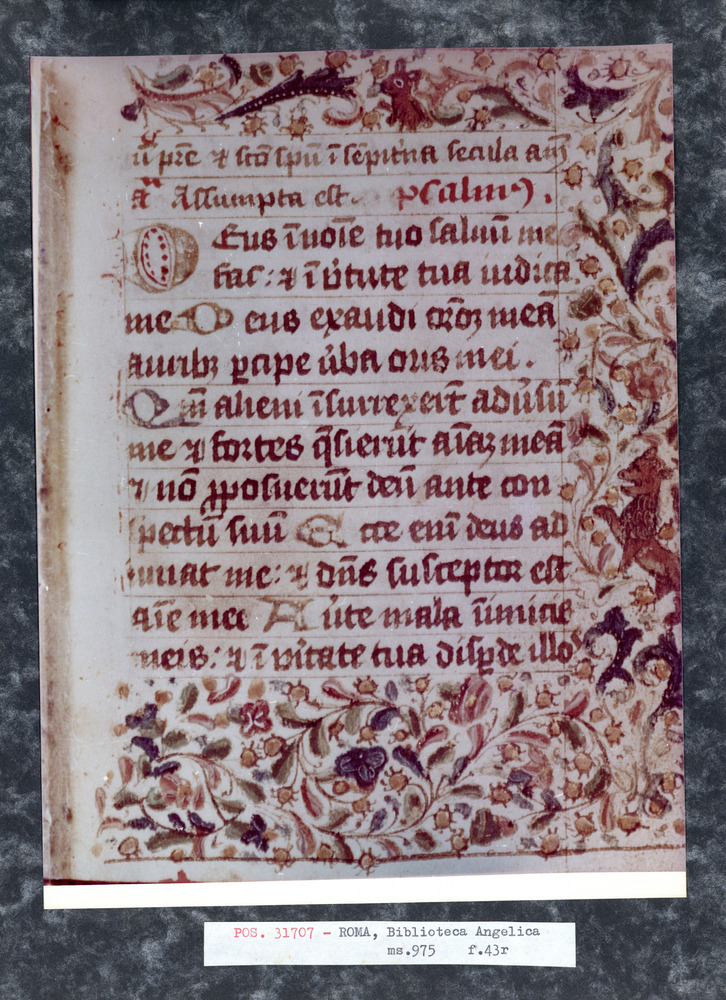 ū pr̄e ⁊ sc̄o spū ī sēpit'na secula am̄
a Assumpta est. psalmꝰ.
Deus ī noīe tuo saluū me
fac: ⁊ ī v̄tute tua iudica
me Deus exaudi or̄oꝫ meā
auribꝫ ꝑcipe v̄ba oris mei.
Qm̄ alieni īsurrexer̄t adūsū
me ⁊ fortes q̄sierūt aīaꝫ meā
⁊ nō ꝓposuerūt deū ante con
spectū suū Ecce enī deus ad
iuuat me: ⁊ dn̄s susceptor est
aīe mee Auͤte mala īimicis
meis: ⁊ ī vītate tua disꝑde illoꝰ
POS. 31707 - ROMA, Biblioteca Angelica
ms.975 f.43r